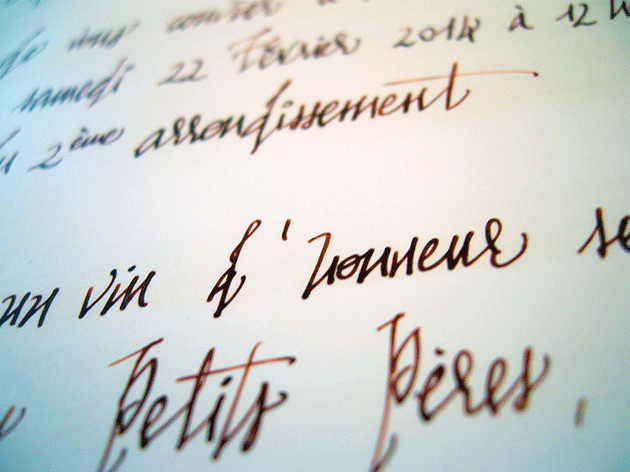 de vous convier à
samedi 22 Février 2014 à 12 h
du 2ème arrondissement
un vin d'honneur se
Petits Pères,